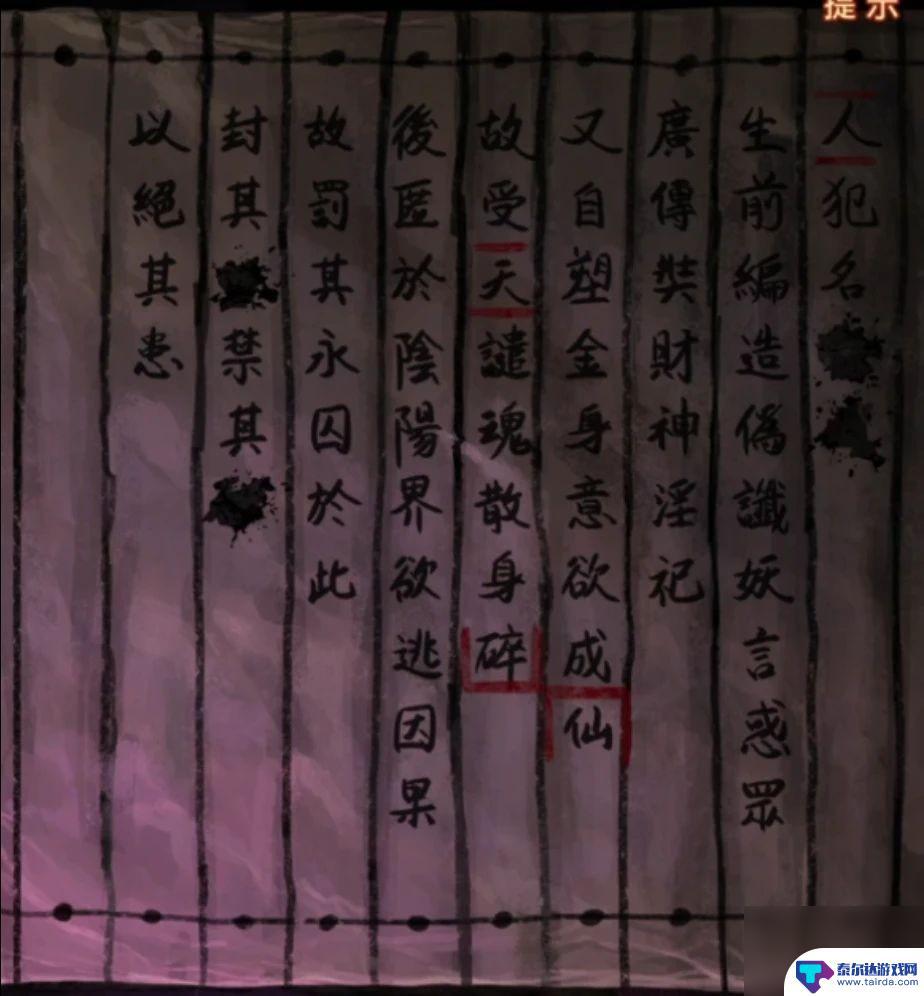 提示
人犯名
生前編造偽讖妖言惑眾
廣傳奘財神淫祀
又自塑金身意欲成仙
故受天譴魂散身碎
後匿於陰陽界欲逃因果
故罰其永囚於此
封其禁其
以絕其患
泰尔达游戏网
www.tairda.com